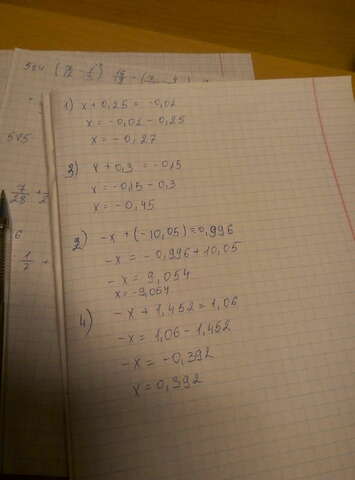 584
1) x + 0,25 = -0,02
x = -0,02 - 0,25
x = -0,27
585
3) x + 0,3 = -0,15
x = -0,15 - 0,3
x = -0,45
2) -x + (-10,05) = 0,996
-x = -0,996 + 10,05
-x = 9,054
x = -9,054
4) -x + 1,452 = 1,06
-x = 1,06 - 1,452
-x = -0,392
x = 0,392